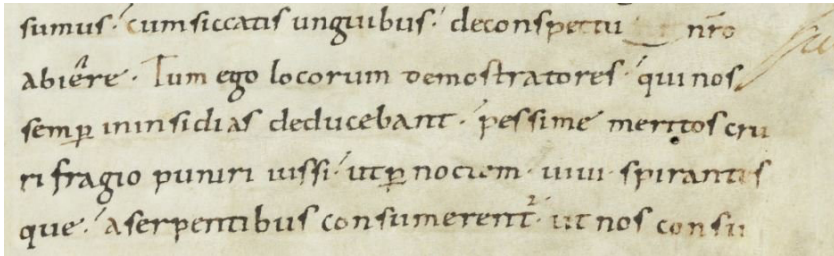 sumus. cum siccatis unguibus. de conspectu nr̄o
abiēre. Tum ego locorum demostratores. qui nos
semꝑ in insidias deducebant. pessime meritos cru
rifragio puniri iussi. utꝑ noctem. uiui. spirantes
que. a serpentibus consumerent᷑. ut nos consu